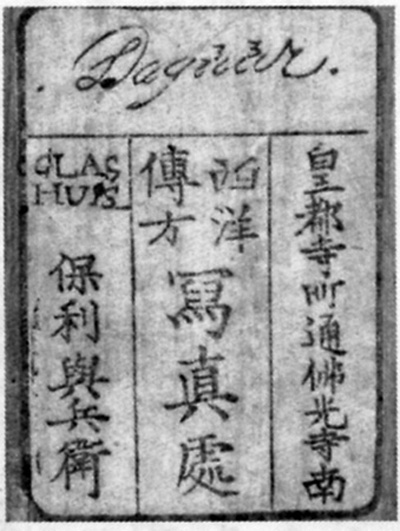 皇都寺町通佛光寺南
西洋
傳方
冩真處
GLAS
HUIS
保利與兵衛